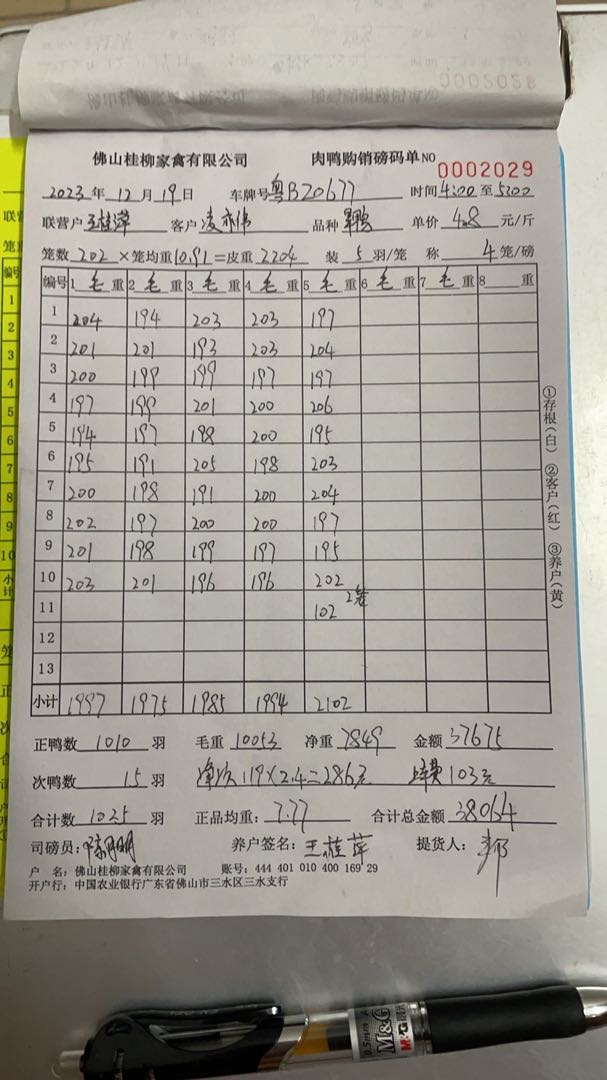 0002028
佛山桂柳家禽有限公司 肉鸭购销磅码单 NO 0002029
2023年12月19日 车牌号粤BZ0677 时间4:00至5:00
联营户王桂萍 客户凌亦伟 品种 单价4.8元/斤
笼数202×笼均重10.91=皮重2204 装5羽/笼 称4笼/磅
编号 1毛重 2毛重 3毛重 4毛重 5毛重 6毛重 7毛重 8 重
1 204 194 203 203 197
2 201 201 193 203 204
3 200 199 199 197 197
4 197 199 201 200 206
5 194 197 198 200 195
6 195 191 205 198 203
7 200 198 191 200 204
8 202 197 200 200 197
9 201 198 199 197 195
10 203 201 196 196 202
11 102 2笼
12
13
小计 1997 1975 1985 1994 2102
正鸭数1010羽 毛重10053 净重7849 金额37675
次鸭数15羽 净次119×2.4=286元 103元
合计数1025羽 正品均重:7.77 合计总金额38064
司磅员: 养户签名:王桂萍 提货人:
户 名:佛山桂柳家禽有限公司 账号:444 401 010 400 169 29
开户行:中国农业银行广东省佛山市三水区三水支行
①存根(白) ②客户(红) ③养户(黄)
联营
笼
编号
1
2
3
4
5
6
7
8
9
10
小计
正
次
合
0.5mm
M&G
M&G